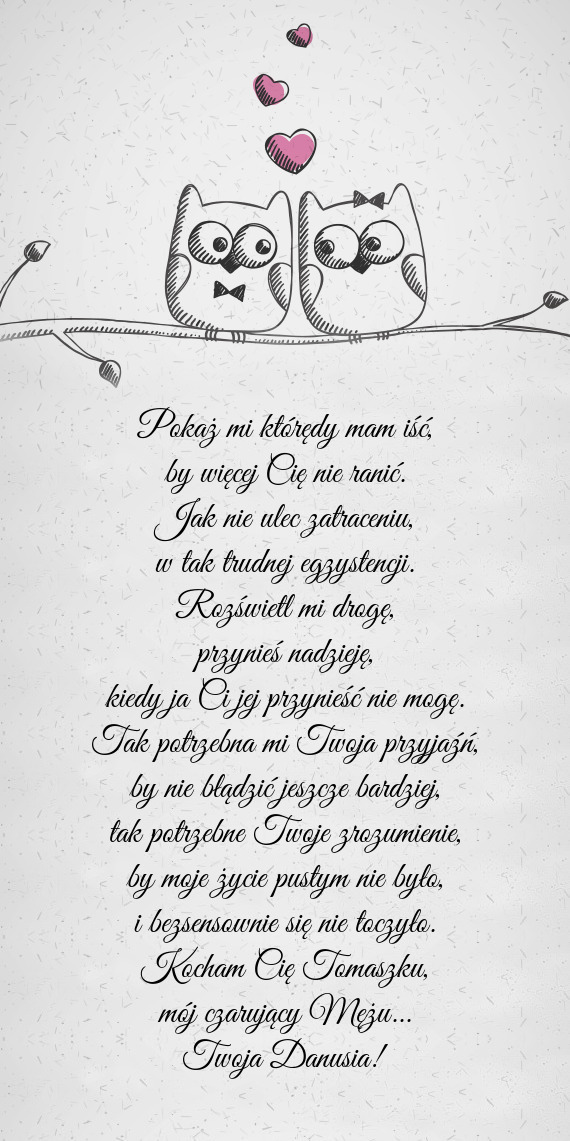 Pokaż mi którędy mam iść,
by więcej Cię nie ranić.
Jak nie ulec zatraceniu,
w tak trudnej egzystencji.
Rozświetl mi drogę,
przynieś nadzieję,
kiedy ja Ci jej przynieść nie mogę.
Tak potrzebna mi Twoja przyjaźń,
by nie błądzić jeszcze bardziej,
tak potrzebne Twoje zrozumienie,
by moje życie pustym nie było,
i bezsensownie się nie toczyło.
Kocham Cię Tomaszku,
mój czarujący Mężu...
Twoja Danusia!